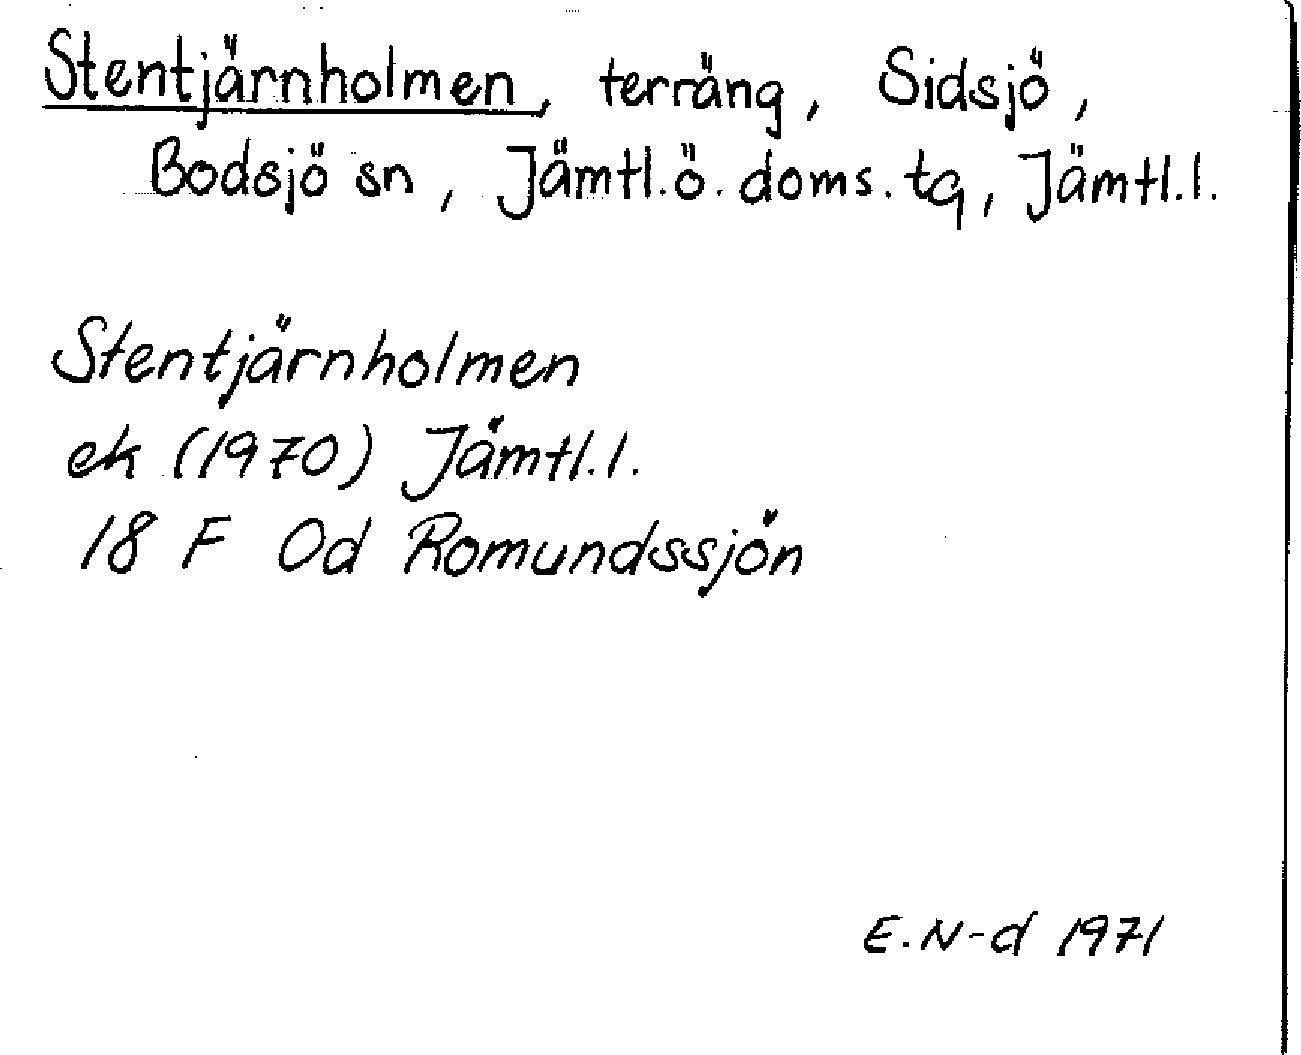 Stentjärnholmen, terräng, Sidsjö,
Bodsjö sn, Jämtl.ö.doms.tg, Jämtl.l.
Stentjärnholmen
ek (1970) Jämtl.l.
18 F Od Romundssjön
E.N-d 1971